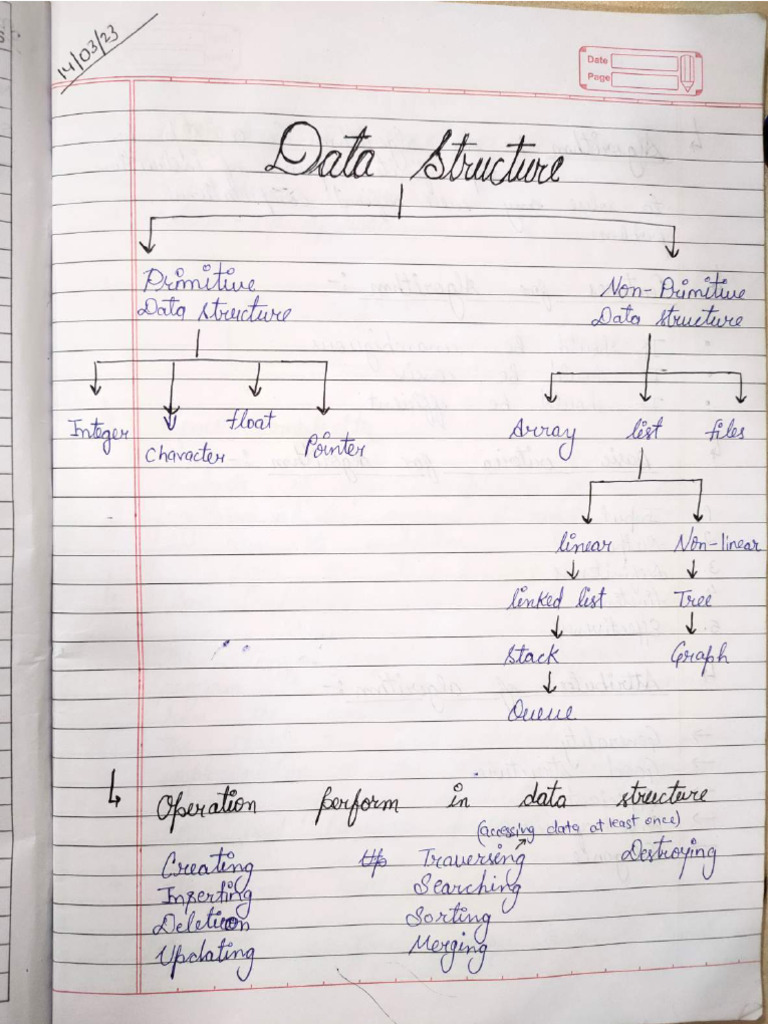 14/03/23
Date
Page
Data Structure
Primitive Non-Primitive
Data structure Data structure
Integer Character float Pointer Array list files
linear Non-linear
linked list Tree
Stack Graph
Queue
Operation perform in data structure
(accessing data at least once)
Creating Traversing Destroying
Inserting Searching
Deletion Sorting
Updating Merging